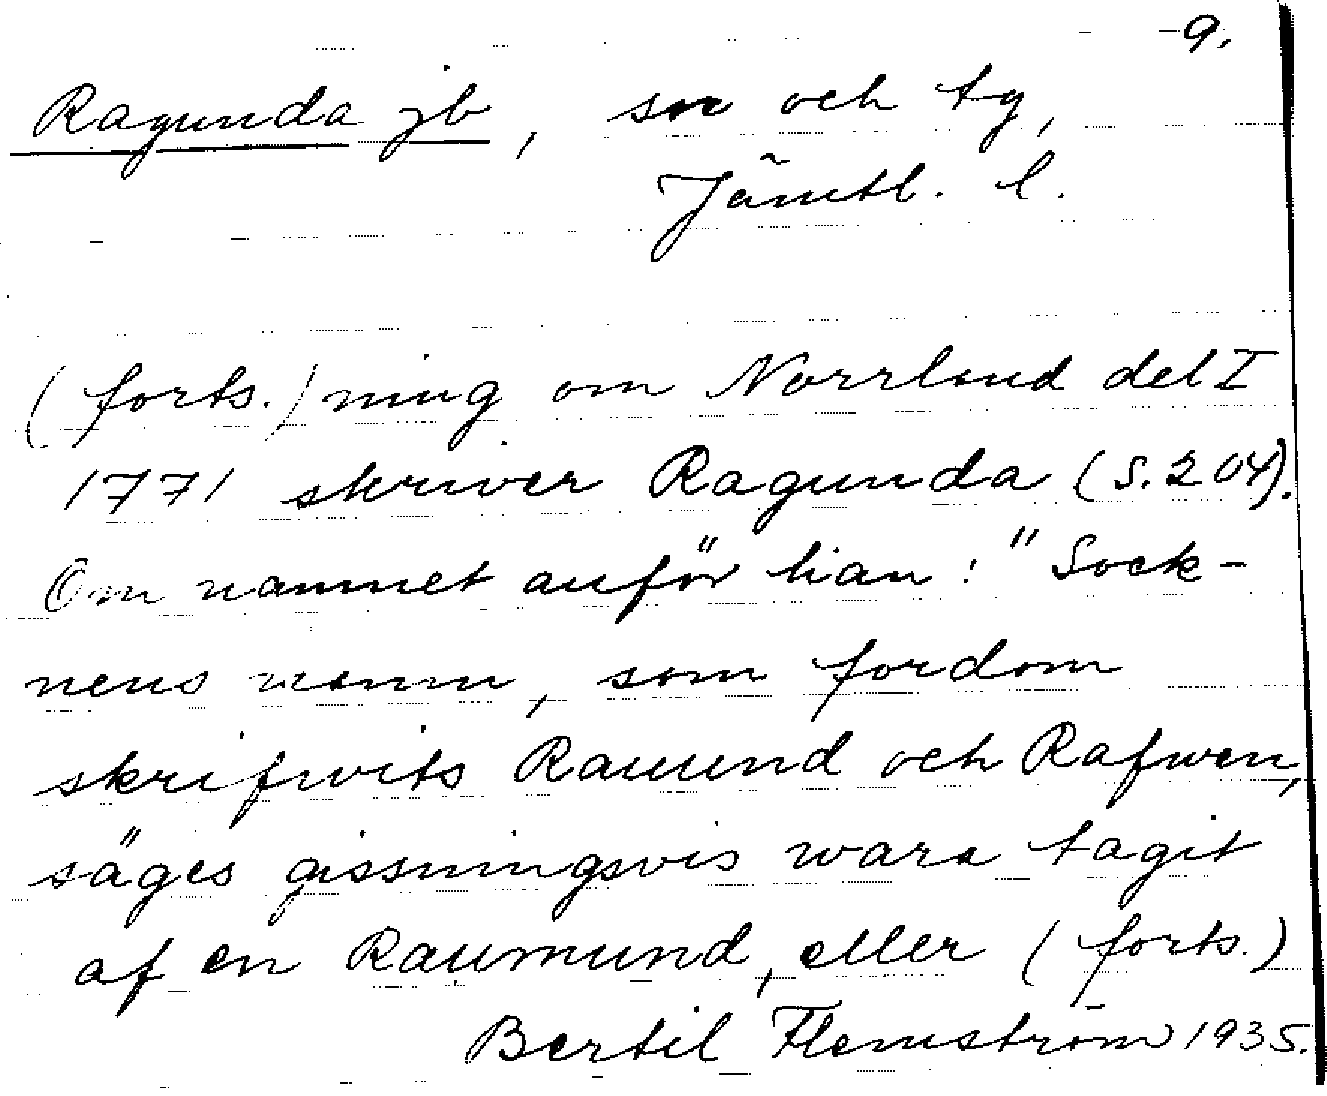 -9.
Ragunda jb, sn och tg,
Jämtl. l.
(forts.) ning om Norrland del I
1771 skriver Ragunda (S. 204).
Om namnet anför han: "Sock-
nens namn, som fordom
skrifwits Ramund och Rafwen,
säges gissningsvis wara tagit
af en Raumund, eller (forts.)
Bertil Flemström 1935.